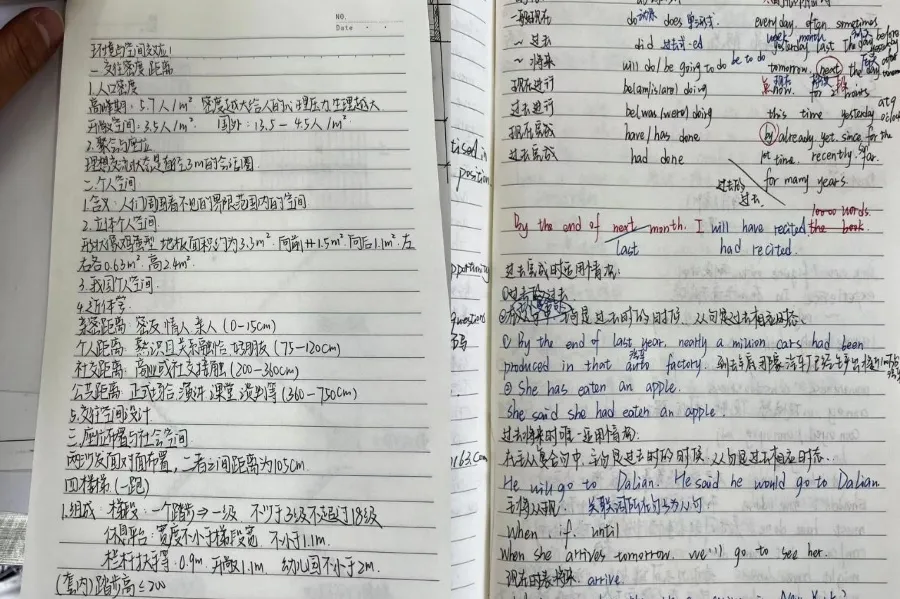 NO.
Date
环境与空间效应
一.交往密度 距离
1.人口密度
高峰期:5.7人/m² 密度越大给人的心理压力生理越大
开敞空间:3.5人/m² 国外:13.5-45人/m²
2.聚合与座位
理想交流状态是直径3m的会话圈
二.个人空间
1.含义:人们周围看不见的界限范围内的空间
2.立体个人空间
形状像鸡蛋型 地板面积约为3.3m² 向前1.5m² 向后1.1m² 左
右各0.63m² 高2.4m²
3.我国个人空间
4.近体学
亲密距离:密友 情人 亲人(0-15cm)
个人距离:熟识且关系融恰 好朋友(75-120cm)
社交距离:商业或社交接触(200-360cm)
公共距离:正式场合 演讲 课堂 谈判等(360-750cm)
5.交往空间设计
三.座位布置与社会空间
两沙发面对面布置,二者之间距离为105cm
四 楼梯(一跑)
1.组成:梯段:一个踏步⇒一级 不少于3级不超过18级
休息平台:宽度不小于梯段宽 不小于1.1m
栏杆扶手等:0.9m 开敞1.1m 幼儿园不小于2m
(套内)踏步高≤200
tised in
position
pportunity
question
163.com
一般现在 do does every day, often sometimes
week month
~过去 did 过去式-ed yesterday last the day before yesterday
~将来 will do/be going to do be to do tomorrow, next the day after tomorrow
现在进行 be(am/is/are) doing now. for 2 hours
过去进行 be(was/were) doing this time yesterday at 9 o'clock
现在完成 have/has done by already yet. since for the
过去完成 had done 1st time, recently, so far.
过去的过去 for many years.
By the end of next month, I will have recited the book. 10000 words.
last had recited.
过去完成时适用情况:
①过去的过去
主句是过去时的时候,从句是过去相应时态.
① by the end of last year, nearly a million cars had been
produced in that auto factory. 汽车
② She has eaten an apple.
She said she had eaten an apple.
过去将来时唯一适用情况:
在主从复合句中,主句是过去时的时候,从句是过去相应时态.
He will go to Dalian. He said he would go to Dalian
主将从现. 关联词所在句子为从句
when, if, until
When she arrives tomorrow, we'll go to see her.
现在时表将来. arrive